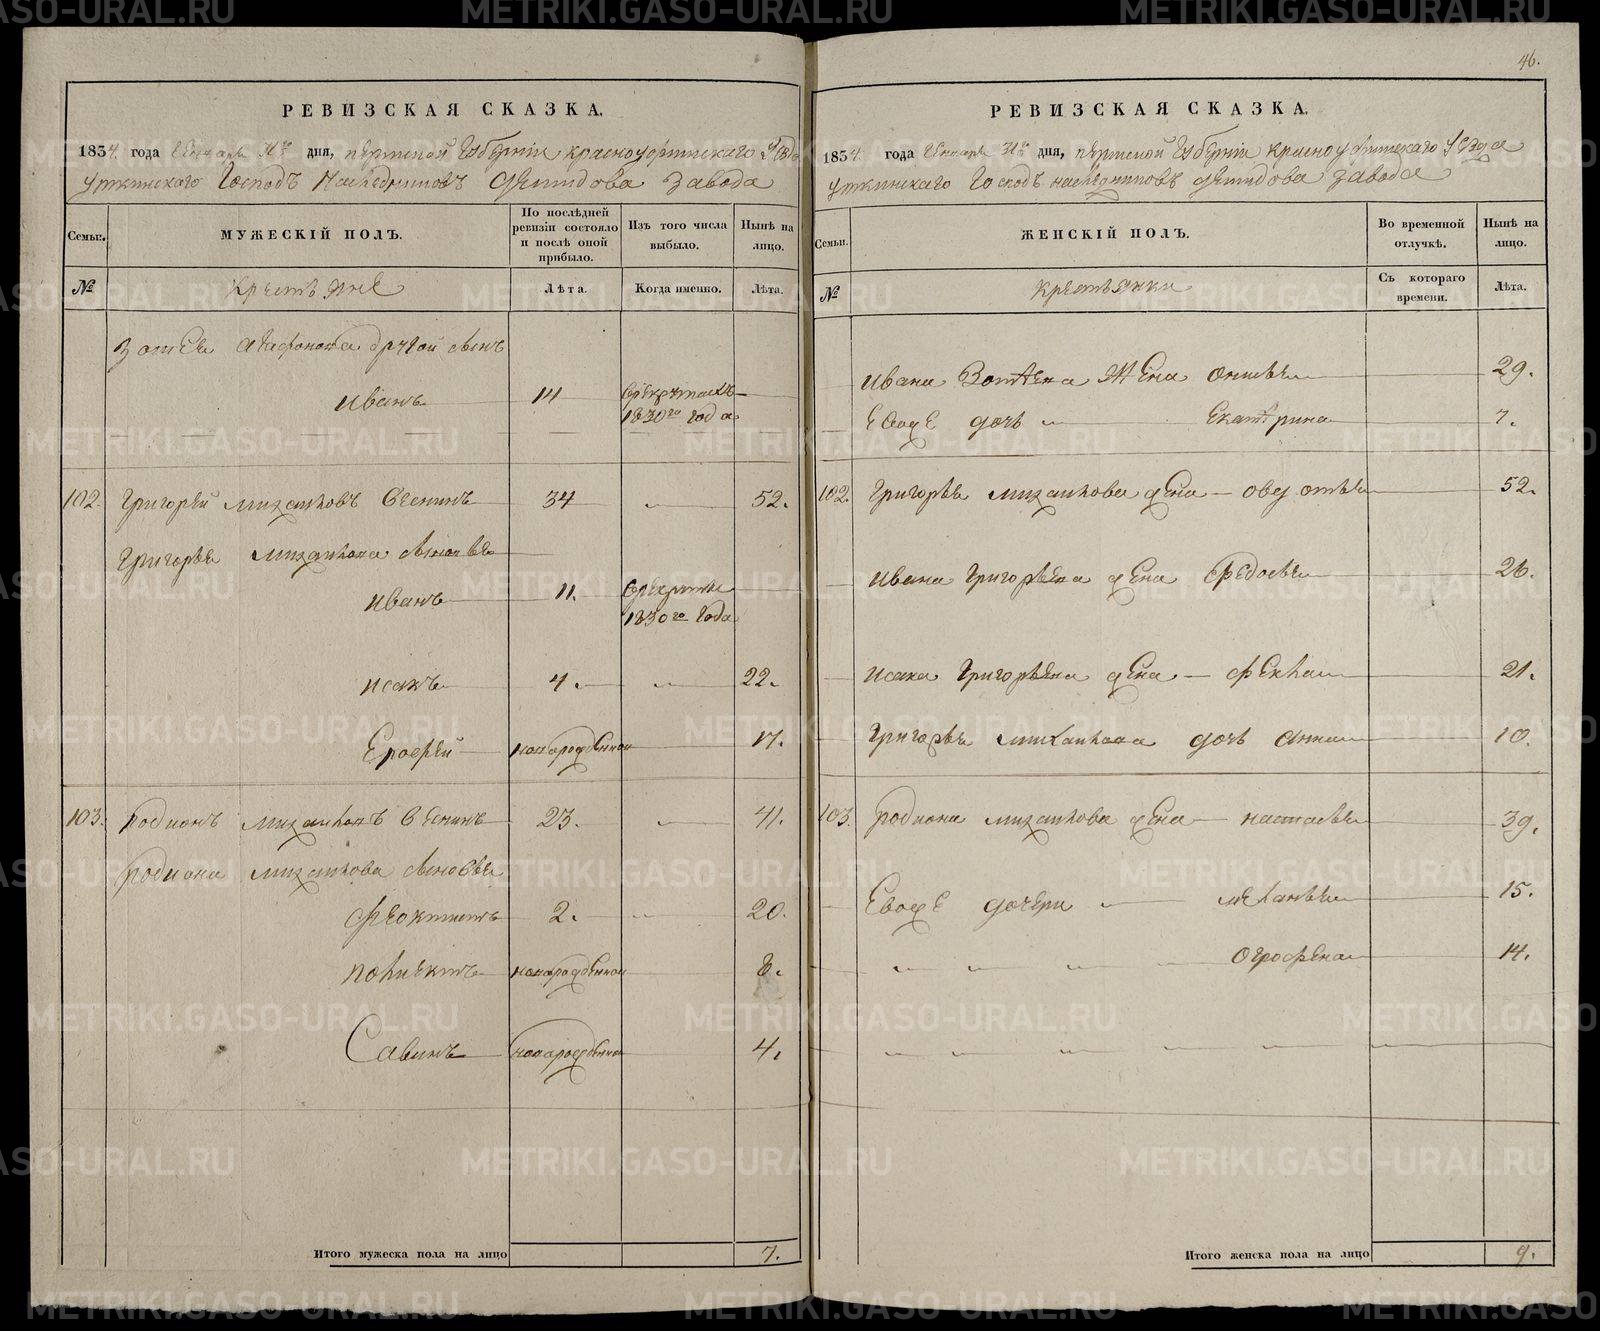 46.
РЕВИЗСКАЯ СКАЗКА.
1834. года Генваря 31го дня, Пермской Губернии Красноуфимскаго Уезда
Уткинскаго Господъ Наследниковъ Демидова Завода
Семьи. МУЖЕСКІЙ ПОЛЪ. По послѣдней ревизіи состояло и послѣ оной прибыло. Изъ того числа выбыло. Нынѣ на лицо.
№ Крестьяне Лѣта. Когда именно. Лѣта.
Зотея Агафонова другой сынъ
Иванъ 14
1830го года
102. Григорей Михаиловъ Сенинъ 34 52.
Григорья Михаилова сыновья
Иванъ 11. 1830го года
Исакъ 4. 22.
Ерофей новорожденной 17.
103. Родионъ Михаиловъ Сенинъ 23. 41.
Родиона Михаилова сыновья
Феоктистъ 2. 20.
Полиектъ новорожденной 8.
Савинъ новорожденной 4.
Итого мужеска пола на лицо 7.
РЕВИЗСКАЯ СКАЗКА.
1834. года Генваря 31го дня, Пермской Губернии Красноуфимскаго Уезда
Уткинскаго Господъ Наследниковъ Демидова Завода
Семьи. ЖЕНСКІЙ ПОЛЪ. Во временной отлучкѣ. Нынѣ на лицо.
№ Крестьянки Съ котораго времени. Лѣта.
Ивана Зотѣева жена 29.
Евоже дочь Екатерина 7.
102. Григорья Михаилова жена 52.
Ивана Григорьева жена Федосья 26.
Исака Григорьева жена Фекла 21.
Григорья Михаилова дочь Анна 10.
103. Родиона Михаилова жена Настасья 39.
Евоже дочери Меланья 15.
Огрофена 14.
Итого женска пола на лицо 9.
METRIKI.GASO-URAL.RU